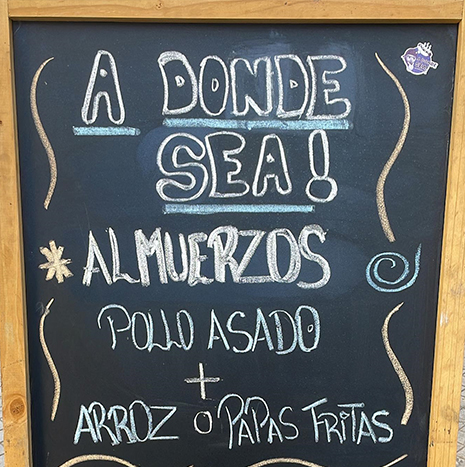 A DONDE
SEA!
ALMUERZOS
POLLO ASADO
+
ARROZ O PAPAS FRITAS